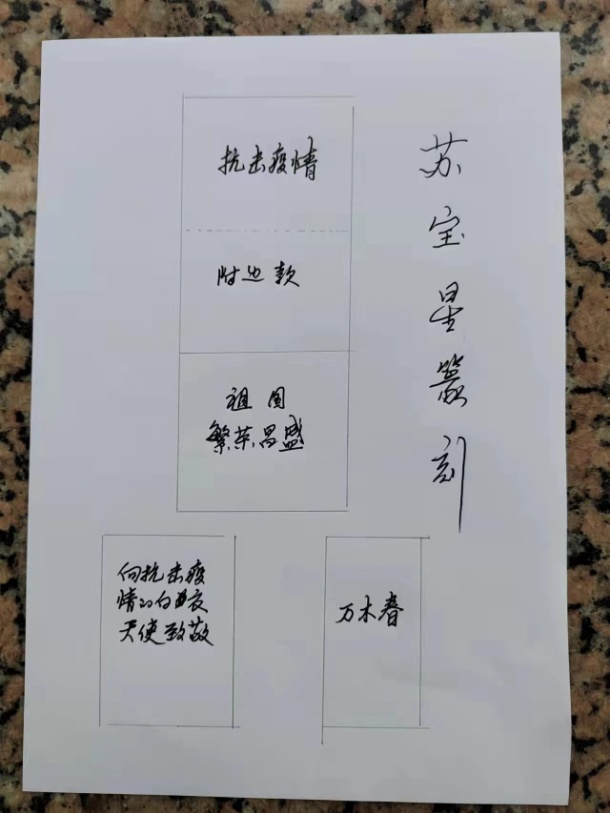 苏宝星篆刻
抗击疫情
附边款
祖国
繁荣昌盛
向抗击疫
情的白衣
天使致敬
万木春